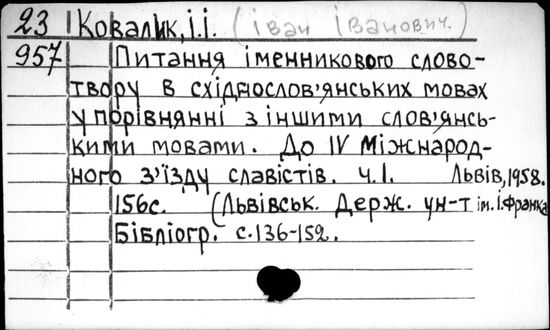 23 Ковалик, І.І. (Іван Іванович.)
957 Питання іменникового слово-
твору в східнослов'янських мовах
у порівнянні з іншими слов'янсь-
кими мовами. До IV Міжнарод-
ного з'їзду славістів. ч.І. Львів, 1958.
156с. (Львівськ. Держ. ун-т ім. І. Франка
Бібліогр. с.136-152.